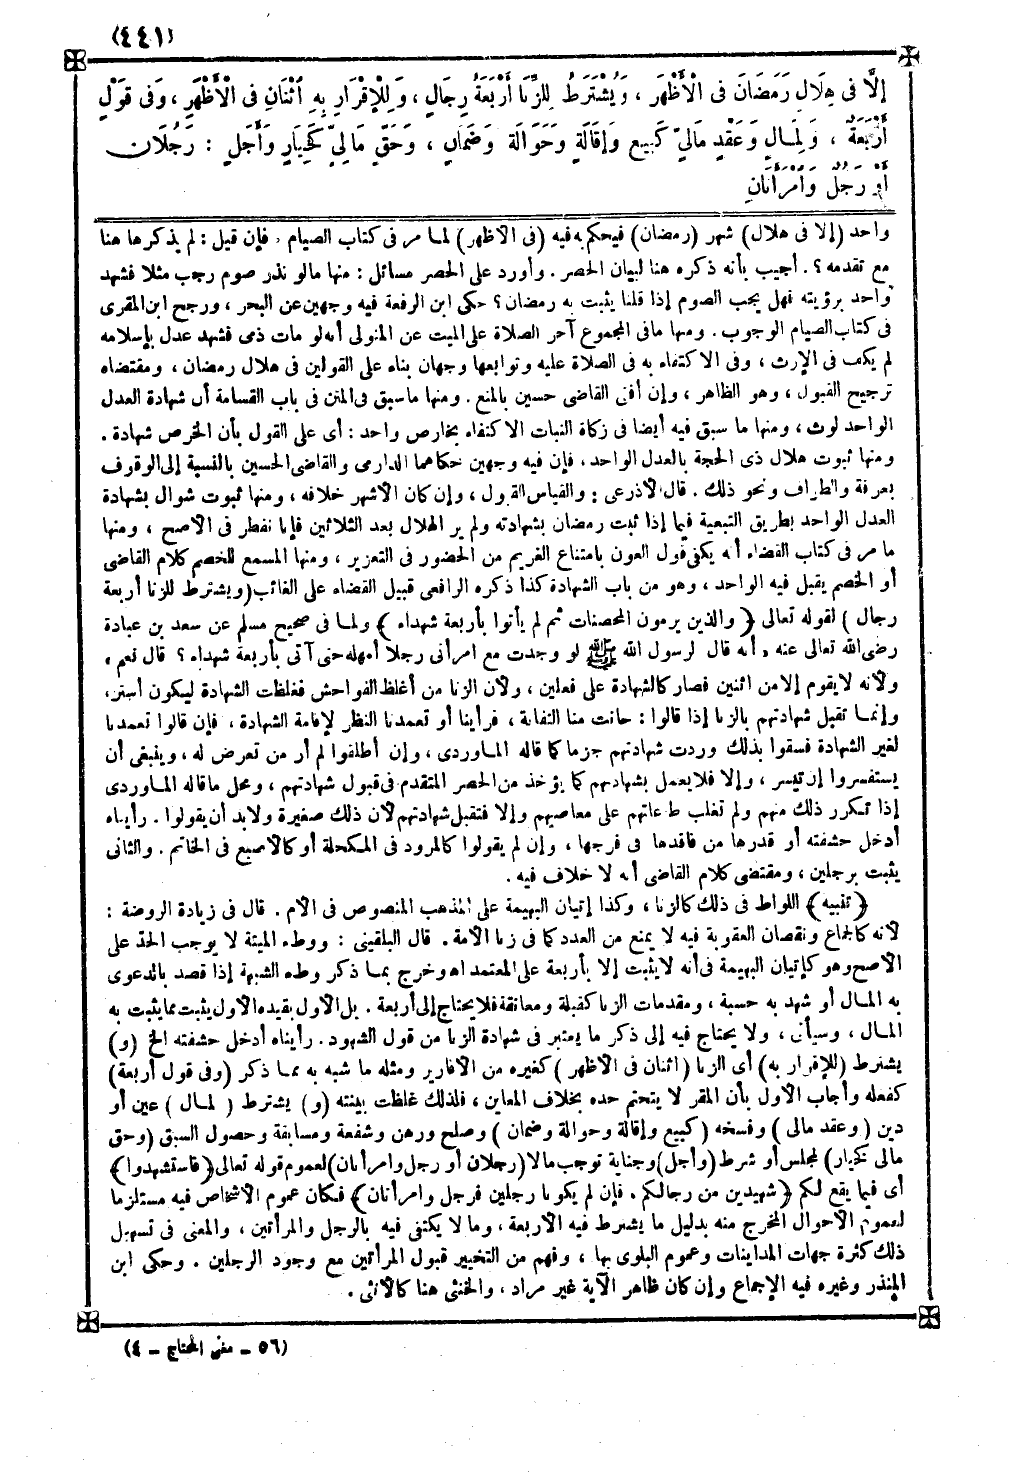 (٤٤١)
إِلَّا فِى هِلَالِ رَمَضَانَ فِى الْأَظْهَرِ ، وَيُشْتَرَطُ لِلزِّنَا أَرْبَعَةُ رِجَالٍ ، وَلِلْإِقْرَارِ بِهِ اثْنَانِ فِى الْأَظْهَرِ ، وَفِى قَوْلٍ
أَرْبَعَةٌ ، وَلِمَالٍ وَعَقْدٍ مَالِىٍّ كَبَيْعٍ وَإِقَالَةٍ وَحَوَالَةٍ وَضَمَانٍ ، وَحَقٍّ مَالِىٍّ كَخِيَارٍ وَأَجَلٍ : رَجُلَانِ
أَوْ رَجُلٌ وَامْرَأَتَانِ
واحد (إلا فى هلال) شهر (رمضان) فيحكم به فيه (فى الأظهر) لما مر فى كتاب الصيام . فإن قيل : لم يذكرها هنا
مع تقدمه ؟ . أجيب بأنه ذكره هنا لبيان الحصر . وأورد على الحصر مسائل : منها مالو نذر صوم رجب مثلا فشهد
واحد برؤيته فهل يجب الصوم إذا قلنا يثبت به رمضان ؟ حكى ابن الرفعة فيه وجهين عن البحر ، ورجح ابن المقرى
فى كتاب الصيام الوجوب . ومنها مافى المجموع آخر الصلاة على الميت عن المتولى أنه لو مات ذمى فشهد عدل بإسلامه
لم يكف فى الإرث ، وفى الاكتفاء به فى الصلاة عليه وتوابعها وجهان بناء على القولين فى هلال رمضان ، ومقتضاه
ترجيح القبول ، وهو الظاهر ، وإن أفتى القاضى حسين بالمنع . ومنها ماسبق فى المتن فى باب القسامة أن شهادة العدل
الواحد لوث ، ومنها ما سبق فيه أيضا فى زكاة النبات الاكتفاء بخارص واحد : أى على القول بأن الخرص شهادة .
ومنها ثبوت هلال ذى الحجة بالعدل الواحد ، فإن فيه وجهين حكاهما الدارمى والقاضى الحسين بالنسبة إلى الوقوف
بعرفة والطواف ونحو ذلك . قال الأذرعى : والقياس القبول ، وإن كان الأشهر خلافه ، ومنها ثبوت شوال بشهادة
العدل الواحد بطريق التبعية فيما إذا ثبت رمضان بشهادته ولم ير الهلال بعد الثلاثين فإنا نفطر فى الأصح ، ومنها
ما مر فى كتاب القضاء أنه يكفى قول العون بامتناع الغريم من الحضور فى التعزير ، ومنها المسمع للخصم كلام القاضى
أو الخصم يقبل فيه الواحد ، وهو من باب الشهادة كذا ذكره الرافعى قبيل القضاء على الغائب (ويشترط للزنا أربعة
رجال) لقوله تعالى ﴿ والذين يرمون المحصنات ثم لم يأتوا بأربعة شهداء ﴾ ولما فى صحيح مسلم عن سعد بن عبادة
رضى الله تعالى عنه « أنه قال لرسول الله ﷺ لو وجدت مع امرأتى رجلا أمهله حتى آتى بأربعة شهداء ؟ قال نعم »
ولأنه لا يقوم إلا من اثنين فصار كالشهادة على فعلين ، ولأن الزنا من أغلظ الفواحش فغلظت الشهادة ليكون أستر،
وإنما تقبل شهادتهم بالزنا إذا قالوا : حانت منا التفاتة ، فرأينا أو تعمدنا النظر لإقامة الشهادة ، فإن قالوا تعمدنا
لغير الشهادة فسقوا بذلك وردت شهادتهم جزما كما قاله الماوردى ، وإن أطلقوا لم أر من تعرض له ، وينبغى أن
يستفسروا إن تيسر ، وإلا فلا يعمل بشهادتهم كما يؤخذ من الحصر المتقدم فى قبول شهادتهم ، ومحل ماقاله الماوردى
إذا تكرر ذلك منهم ولم تغلب طاعاتهم على معاصيهم وإلا فتقبل شهادتهم لأن ذلك صغيرة ولابد أن يقولوا . رأيناه
أدخل حشفته أو قدرها من فاقدها فى فرجها ، وإن لم يقولوا كالمرود فى المكحلة أو كالأصبع فى الخاتم . والثانى
يثبت برجلين ، ومقتضى كلام القاضى أنه لا خلاف فيه .
﴿ تنبيه ﴾ اللواط فى ذلك كالزنا ، وكذا إتيان البهيمة على المذهب المنصوص فى الأم . قال فى زيادة الروضة :
لأنه كالجماع ونقصان العقوبة فيه لا يمنع من العدد كما فى زنا الأمة . قال البلقينى : ووطء الميتة لا يوجب الحد على
الأصح وهو كإتيان البهيمة فى أنه لا يثبت إلا بأربعة على المعتمد اه وخرج بما ذكر وطء الشبهة إذا قصد بالدعوى
به المال أو شهد به حسبة ، ومقدمات الزنا كقبلة ومعانقة فلا يحتاج إلى أربعة . بل الأول بقيده الأول يثبت بما يثبت به
المال ، وسيأتى ، ولا يحتاج فيه إلى ذكر ما يعتبر فى شهادة الزنا من قول الشهود . رأيناه أدخل حشفته الخ (و)
يشترط (للإقرار به) أى الزنا (اثنان فى الأظهر) كغيره من الأقارير ومثله ما شبه به مما ذكر (وفى قول أربعة)
كفعله وأجاب الأول بأن المقر لا يتحتم حده بخلاف المعاين ، فلذلك غلظت بينته (و) يشترط (لمال) عين أو
دين (وعقد مالى) وفسخه (كبيع وإقالة وحوالة وضمان) وصلح ورهن وشفعة ومسابقة وحصول السبق (وحق
مالى كخيار) لمجلس أو شرط (وأجل) وجناية توجب مالا (رجلان أو رجل وامرأتان) لعموم قوله تعالى ﴿ فاستشهدوا ﴾
أى فيما يقع لكم ﴿ شهيدين من رجالكم . فإن لم يكونا رجلين فرجل وامرأتان ﴾ فكان عموم الأشخاص فيه مستلزما
لعموم الأحوال المخرج منه بدليل ما يشترط فيه الأربعة ، وما لا يكتفى فيه بالرجل والمرأتين ، والمعنى فى تسهيل
ذلك كثرة جهات المداينات وعموم البلوى بها ، وفهم من التخيير قبول المرأتين مع وجود الرجلين . وحكى ابن
المنذر وغيره فيه الإجماع وإن كان ظاهر الآية غير مراد ، والخنثى هنا كالأنثى .
(٥٦ - مغنى المحتاج - ٤)